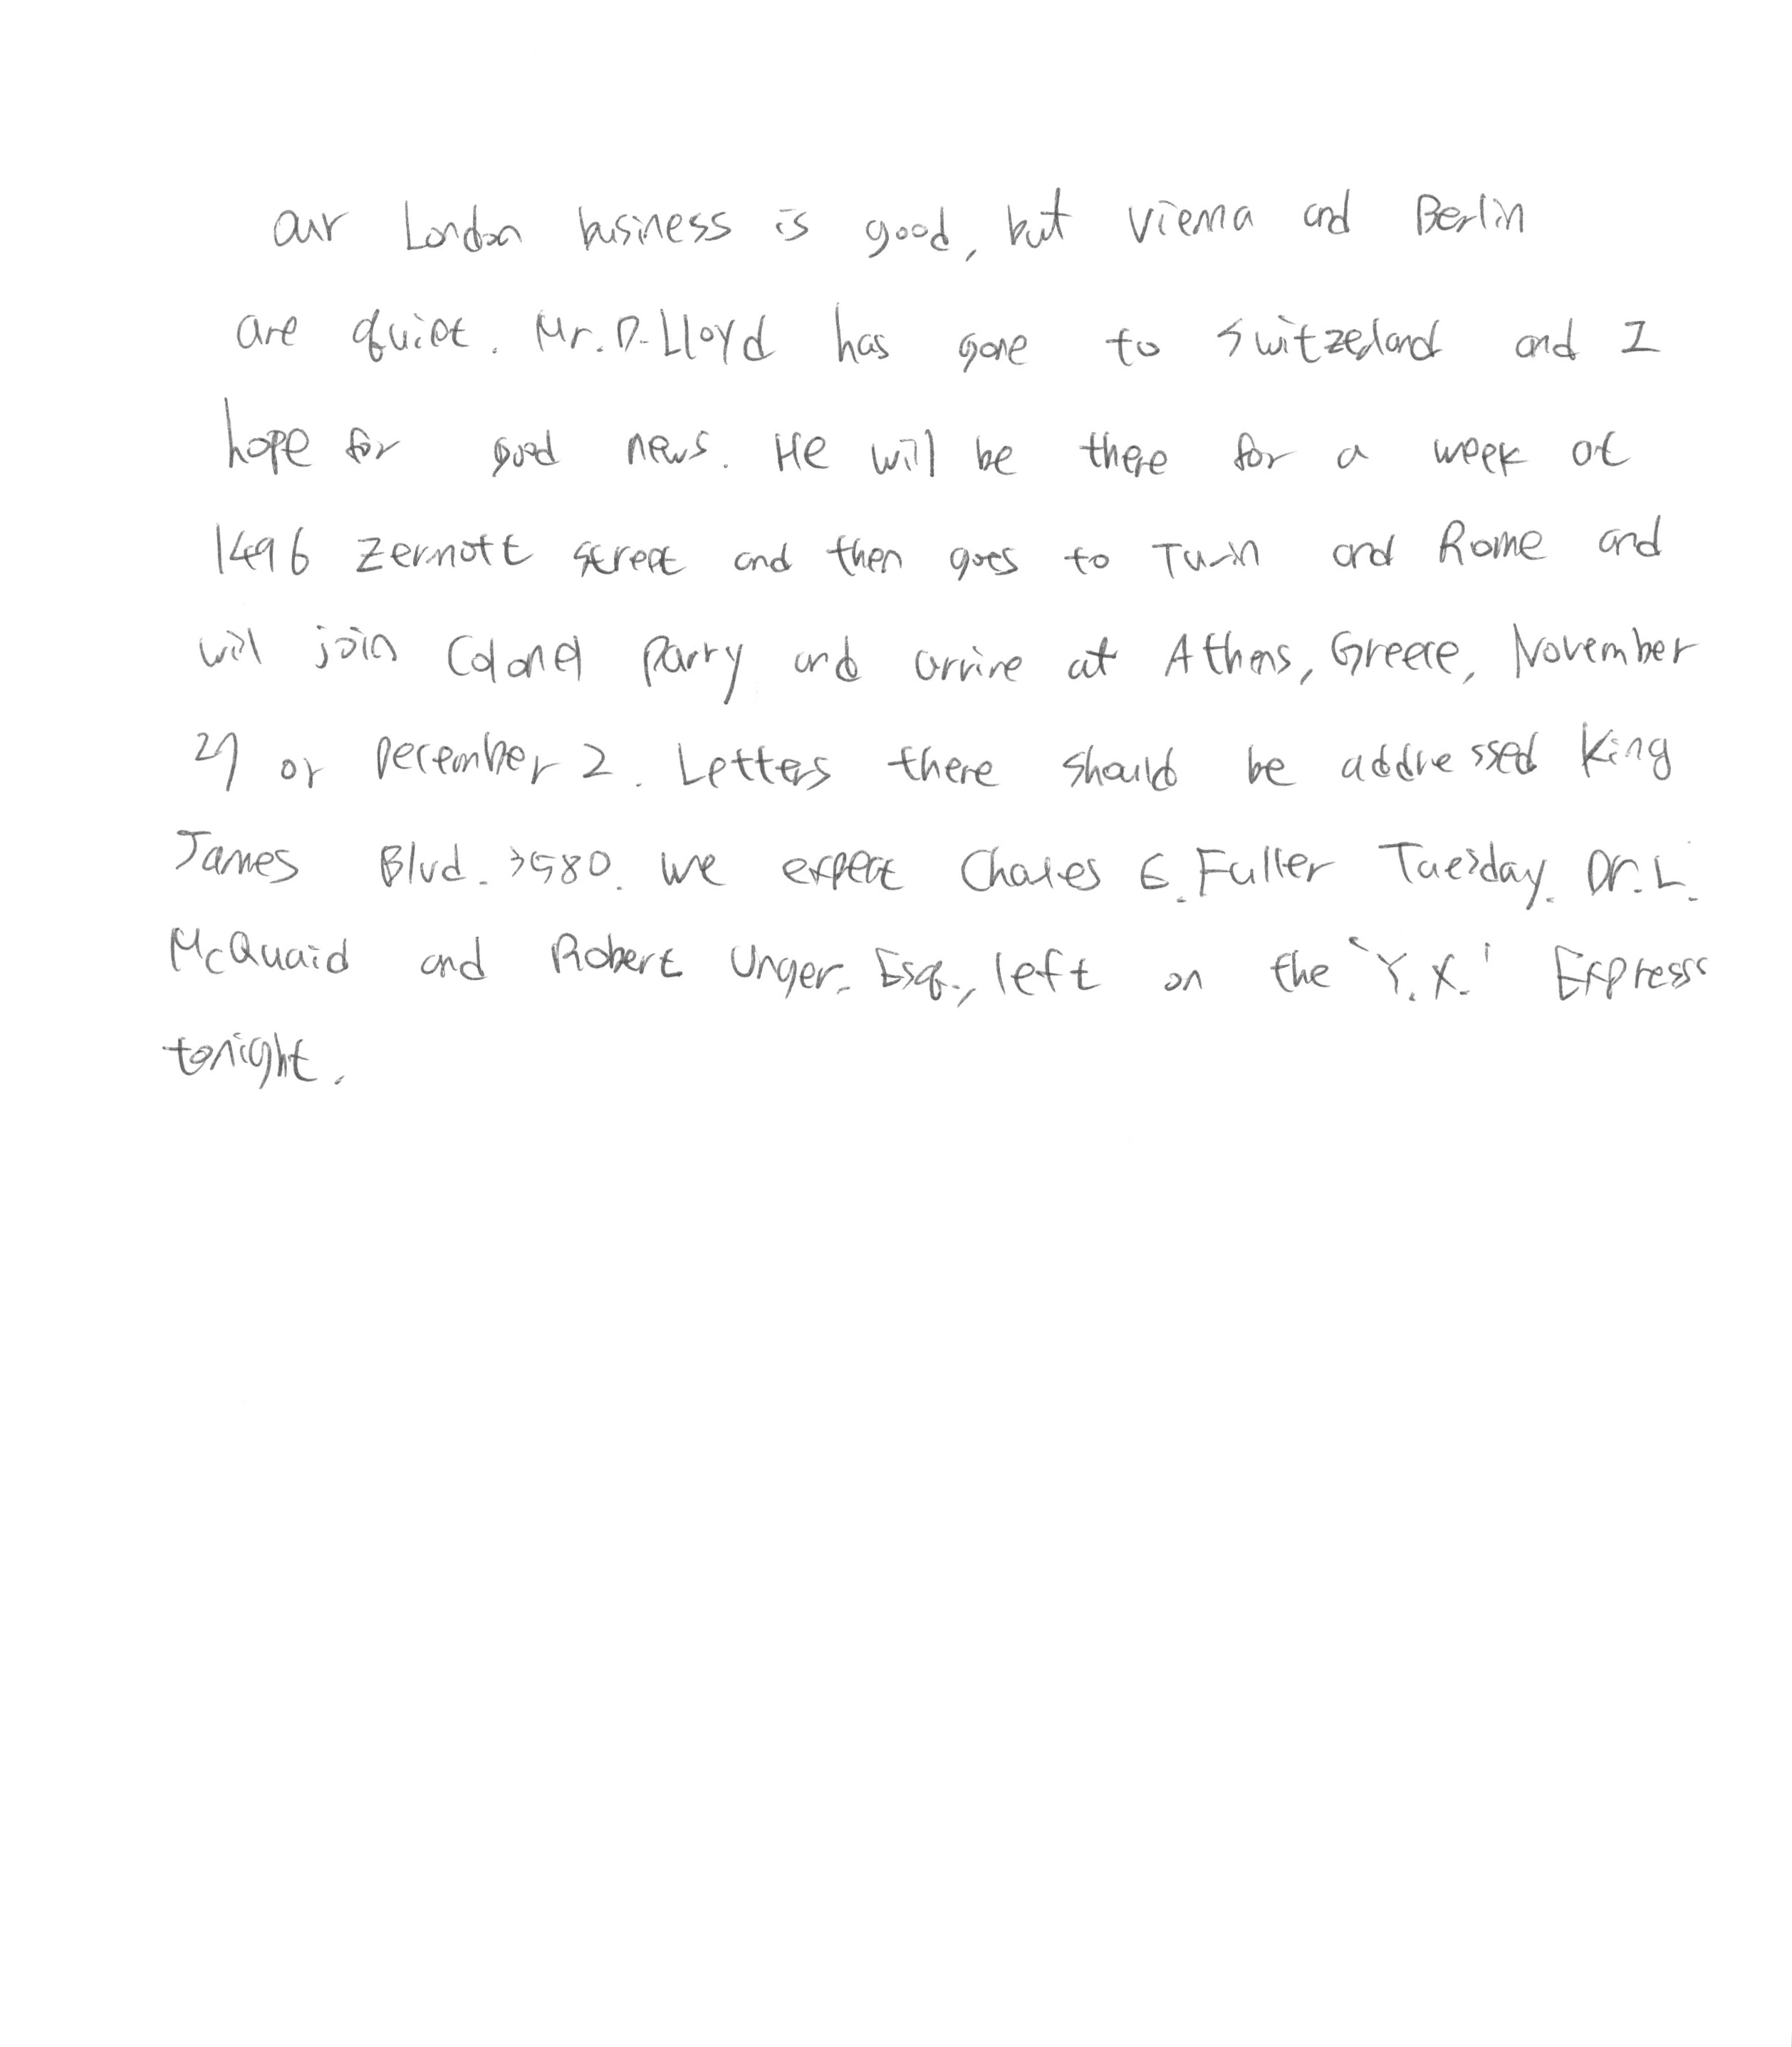 Our London business is good, but Vienna and Berlin
are quiet. Mr. D. Lloyd has gone to Switzeland and I
hope for good news. He will be there for a week at
1496 Zermott Street and then goes to Turin and Rome and
will join Colonel Parry and arrive at Athens, Greece, November
27 or December 2. Letters there should be addressed King
James Blvd. 3580. We expect Chales E. Fuller Tuesday. Dr. L.
McQuaid and Robert Unger, Esq., left on the 'Y.X.' Express
tonight.